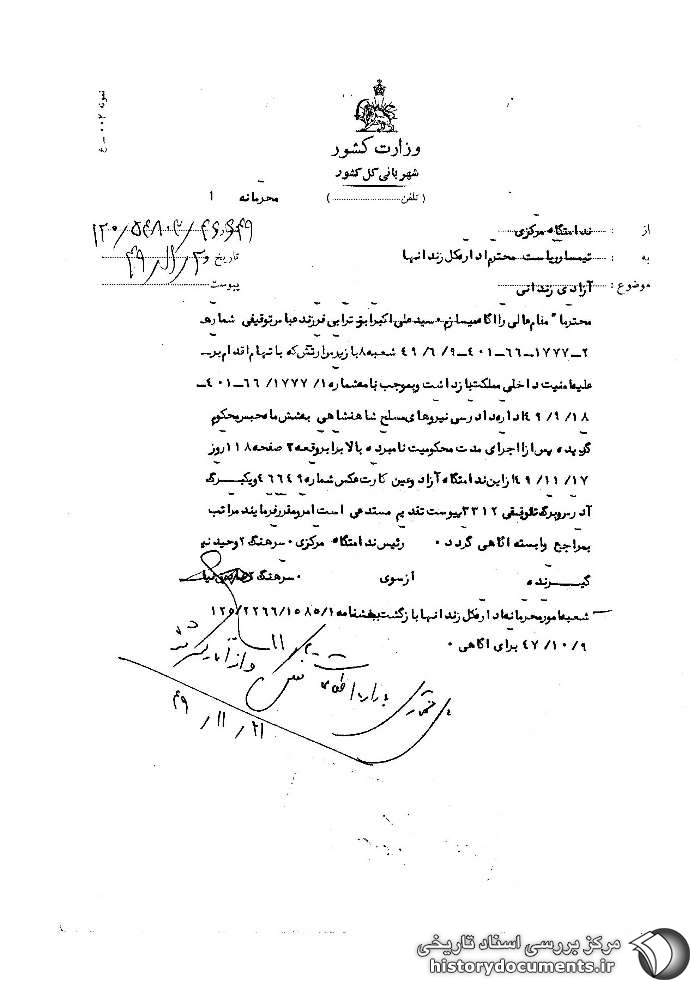 نمونه ۰۰۲ - ع
وزارت کشور
شهربانی کل کشور
(تلفن ..................)
محرمانه ۱
از : ندامتگاه مرکزی
به : تیمسار ریاست محترم اداره کل زندانها
تاریخ ۴۹/۱۱/۲۰
موضوع : آزادی زندانی
پیوست
محترما" بمقام عالی را آگاه میسازم ـ سید علی اکبر ابوترابی فرزند عباس توقیفی شماره
۲ـ۱۷۷۷ـ۶۶ـ۴۰۱ـ۴۹/۶/۹ شعبه ۸ بازپرس ارتش که باتهام اقدام بر
علیه امنیت داخلی مملکت بازداشت و بموجب نامه شماره ۱/۱۷۷۷/۶۶ـ۴۰۱ـ
۴۹/۹/۱۸ اداره دادرسی نیروهای مسلح شاهنشاهی بشش ماه حبس محکوم
گردیده پس از اجرای مدت محکومیت نامبرده بالا برابر وقعه ۲ صفحه ۱۱۸ روز
۴۹/۱۱/۱۷ از این ندامتگاه آزاد وعین کارت عکس شماره ۴۶۶۴۹ ویکبرگ
آدرس وبرگ توقیفی ۳۳۱۲ پیوست تقدیم مستدعی است امر ومقرر فرمایند مراتب
بمراجع وابسته آگاهی گردد ۰ رئیس ندامتگاه مرکزی ۰ سرهنگ ۲ وحید نیا
ازسوی ۰ سرهنگ ۲
گیرنده
شعبه امور محرمانه اداره کل زندانها بازگشت ببخشنامه ۱۲۵/۲۲۶۶/۱۵۸۵/۱
۴۷/۱۰/۹ برای آگاهی ۰
۴۹/۱۱/۲۱
مرکز بررسی اسناد تاریخی
historydocuments.ir